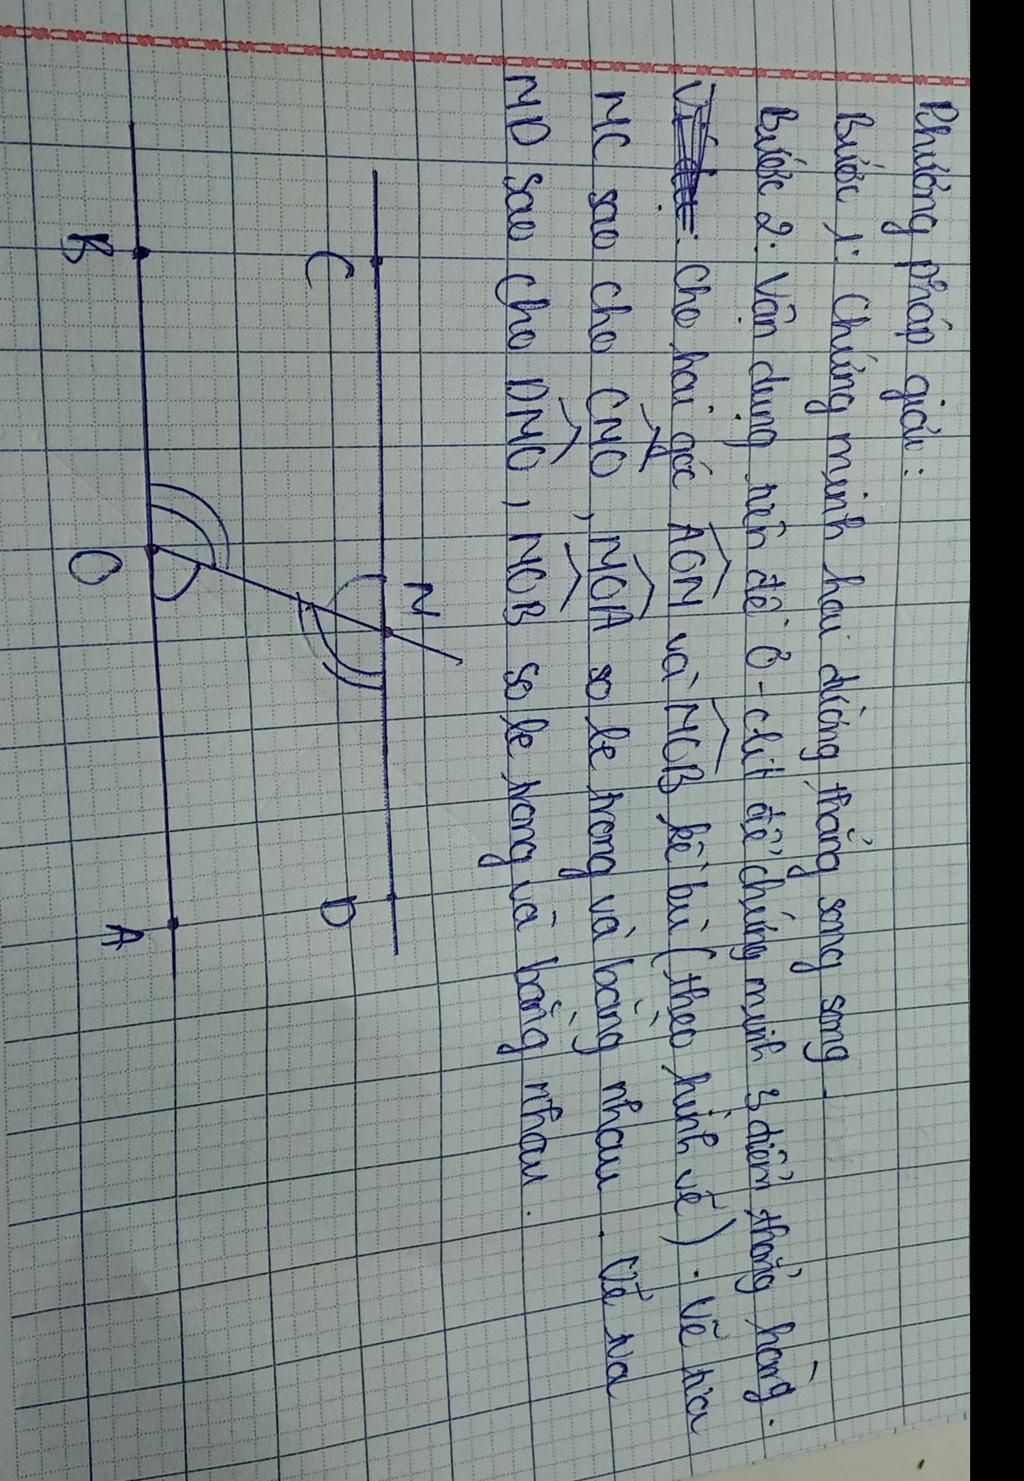 Phương pháp giải:
Bước 1: Chứng minh hai đường thẳng song song.
Bước 2: Vận dụng tiên đề Ơ-clit để chứng minh 3 điểm thẳng hàng.
Cho hai góc AOM và MOB kề bù (theo hình vẽ). Vẽ tia
MC sao cho CMO, MOA so le trong và bằng nhau. Vẽ tia
MD sao cho DMO, MOB so le trong và bằng nhau.
C
M
D
B
O
A